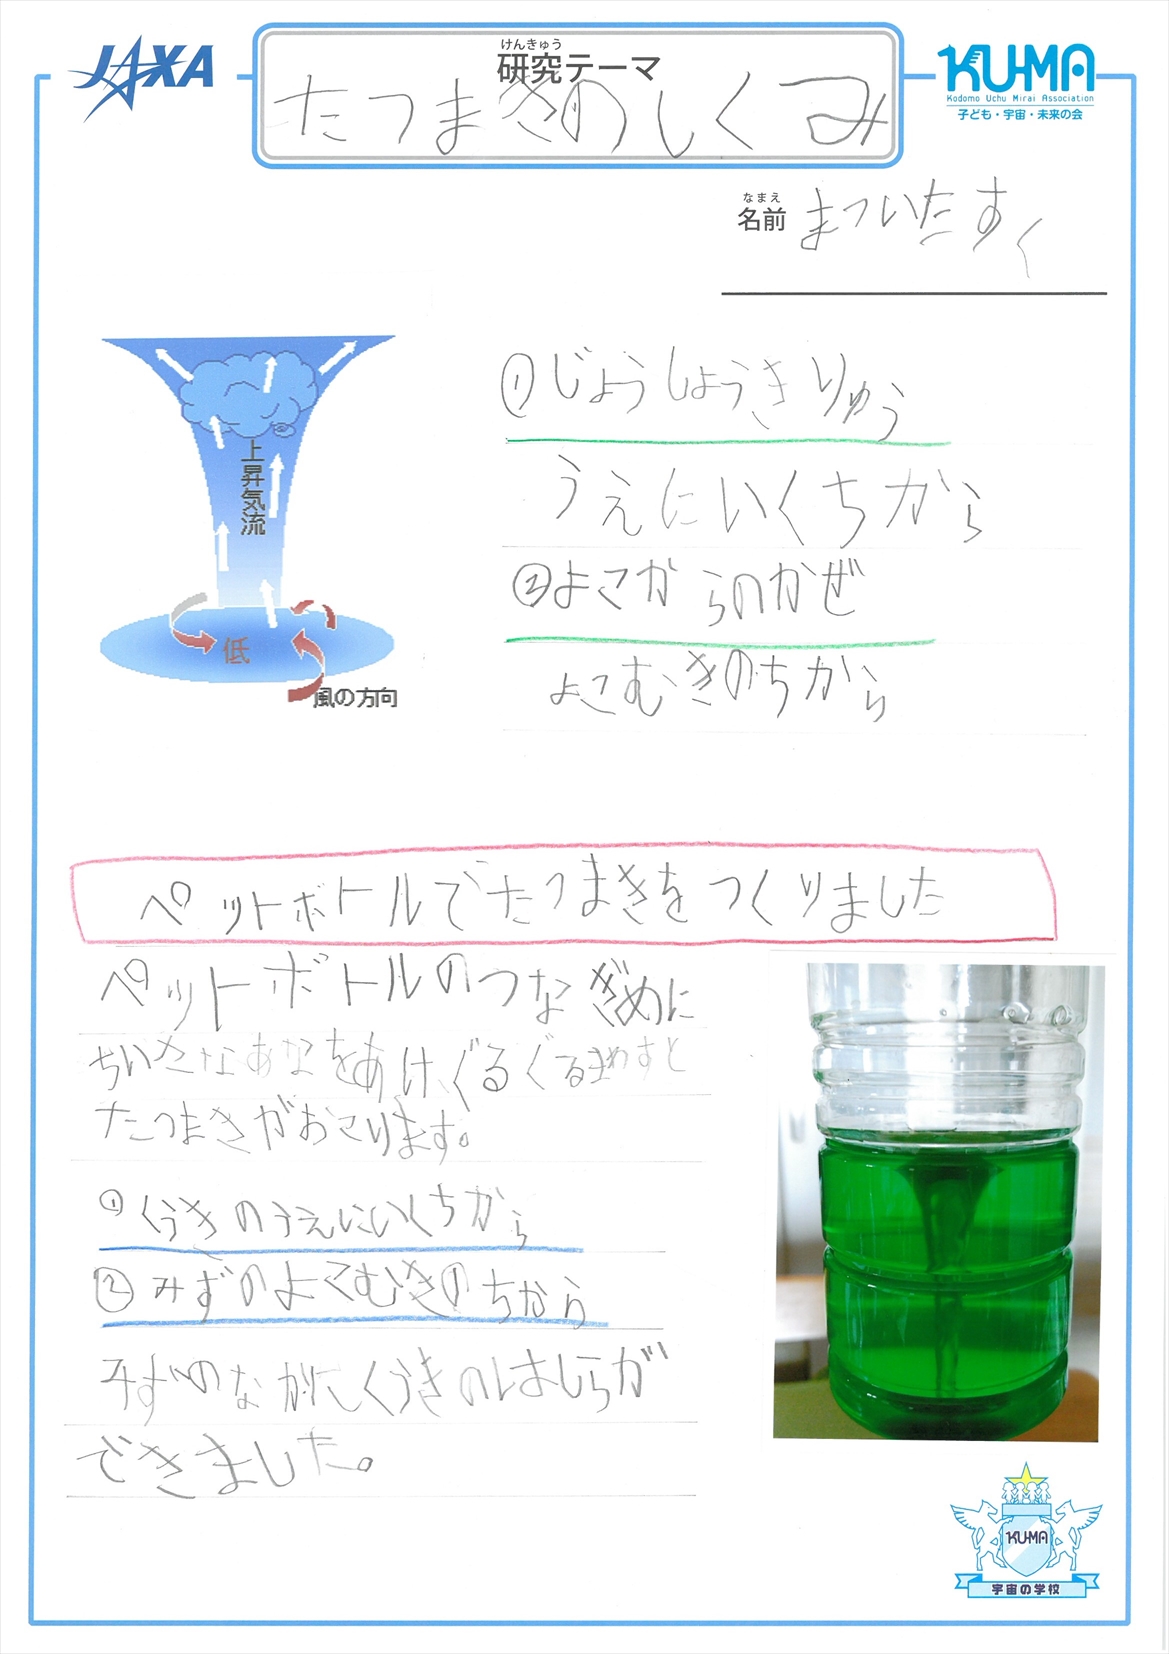 JAXA
けんきゅう
研究テーマ
たつまきのしくみ
KU-MA
Kodomo Uchu Mirai Association
子ども・宇宙・未来の会
なまえ
名前 まついたすく
上昇気流
低
風の方向
①じょうしょうきりゅう
うえにいくちから
②よこからのかぜ
よこむきのちから
ペットボトルでたつまきをつくりました
ペットボトルのつなぎめに
ちいさなあなをあけ、ぐるぐるまわすと
たつまきがおこります。
①くうきのうえにいくちから
②みずのよこむきのちから
みずのなかにくうきのはしらが
できました。
KU-MA
宇宙の学校